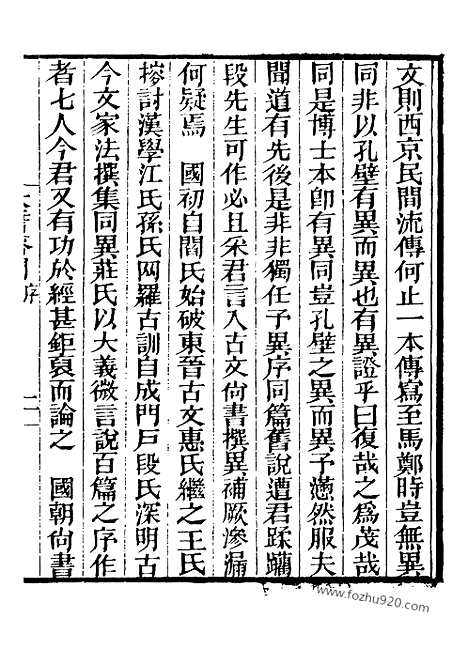 文則西京民間流傳何止一本傳寫至馬鄭時豈無異
同非以孔壁有異而異也有異證乎曰復哉之爲茂哉
同是博士本卽有異同豈孔壁之異而異予懣然服夫
聞道有先後是非非獨任予異序同篇舊說遭君蹂躪
段先生可作必且采君言入古文尙書撰異補厥滲漏
何疑焉　國初自閻氏始破東晉古文惠氏繼之王氏
搉討漢學江氏孫氏网羅古訓自成門戸段氏深明古
今文家法撰集同異莊氏以大義微言說百篇之序作
者七人今君又有功於經甚鉅裒而論之　國朝尙書
序
www.fozhu920.com